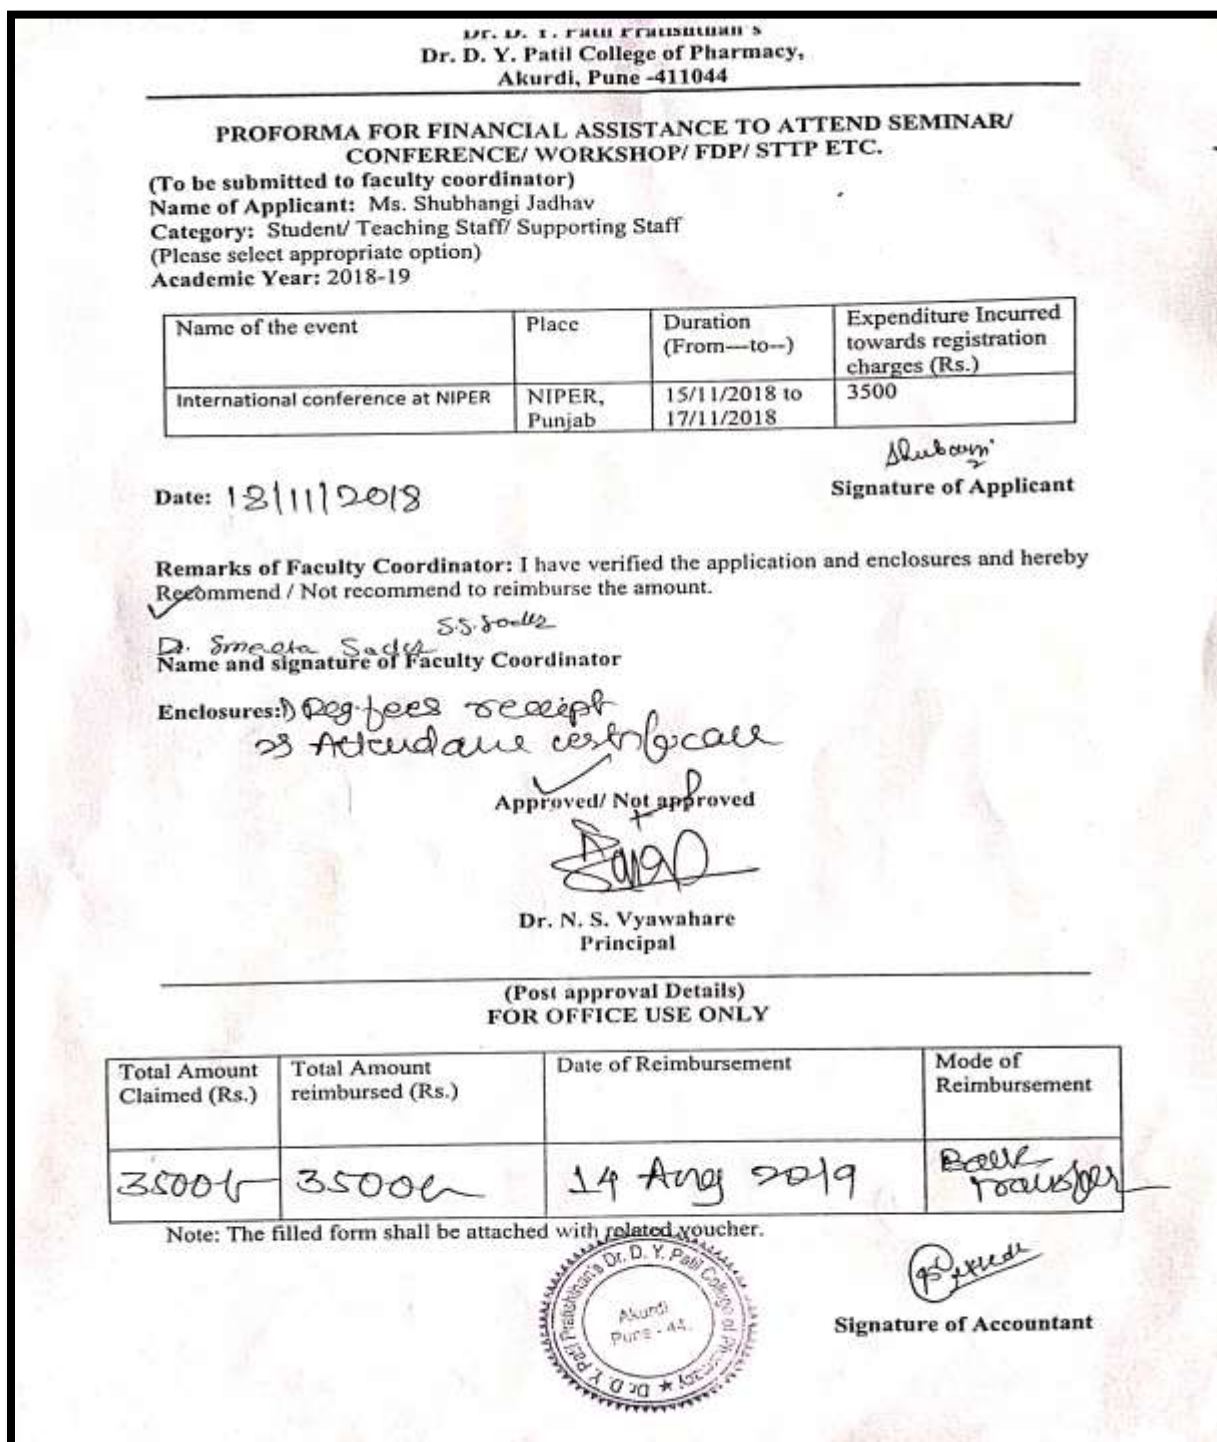 Dr. D. Y. Patil Pratishthan's
Dr. D. Y. Patil College of Pharmacy,
Akurdi, Pune -411044
PROFORMA FOR FINANCIAL ASSISTANCE TO ATTEND SEMINAR/
CONFERENCE/ WORKSHOP/ FDP/ STTP ETC.
(To be submitted to faculty coordinator)
Name of Applicant: Ms. Shubhangi Jadhav
Category: Student/ Teaching Staff/ Supporting Staff
(Please select appropriate option)
Academic Year: 2018-19
Name of the event Place Duration (From—to--) Expenditure Incurred towards registration charges (Rs.)
International conference at NIPER NIPER, Punjab 15/11/2018 to 17/11/2018 3500
Date: 18/11/2018
Signature of Applicant
Remarks of Faculty Coordinator: I have verified the application and enclosures and hereby
Recommend / Not recommend to reimburse the amount.
Dr. Smeeta Sadar
Name and signature of Faculty Coordinator
Enclosures: 1) Reg. fees receipt
2) Attendance certificate
Approved/ Not approved
Dr. N. S. Vyawahare
Principal
(Post approval Details)
FOR OFFICE USE ONLY
Total Amount Claimed (Rs.) Total Amount reimbursed (Rs.) Date of Reimbursement Mode of Reimbursement
3500/- 3500/- 14 Aug 2019 Bank Transfer
Note: The filled form shall be attached with related voucher.
Dr. D. Y. Patil Pratishthan's Dr. D. Y. Patil College of Pharmacy ★
Akurdi
Pune - 44.
Signature of Accountant